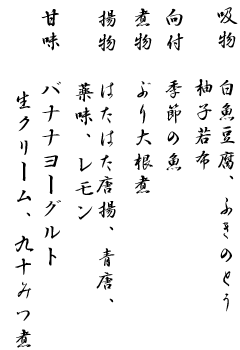 吸物　白魚豆腐、ふきのとう
柚子若布
向付　季節の魚
煮物　ぶり大根煮
揚物　はたはた唐揚、青唐、
薬味、レモン
甘味　バナナヨーグルト
生クリーム、九十みつ煮